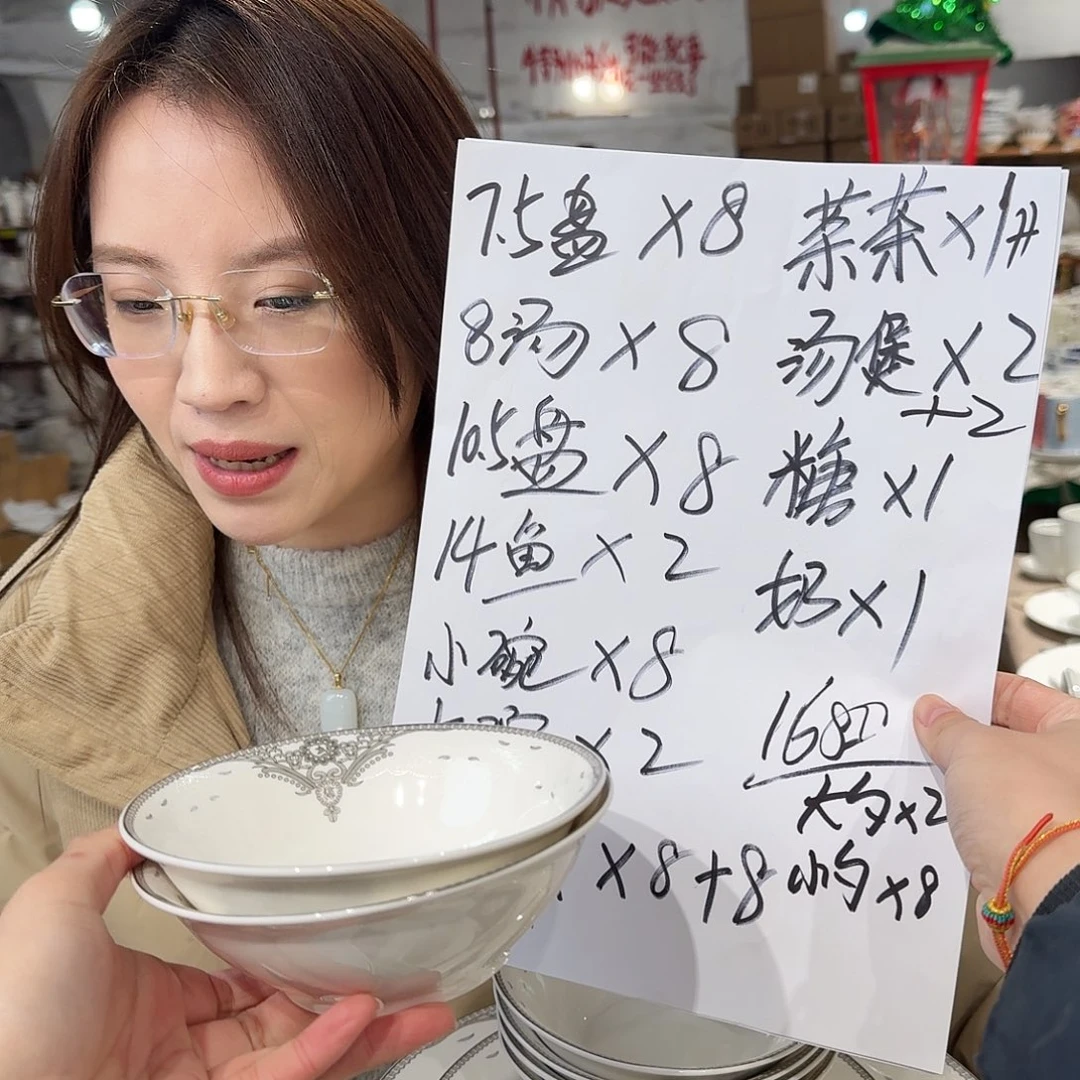 7.5盘 ×8
8汤 ×8
10.5盘 ×8
14鱼 ×2
小碗 ×8
×2
×8+8
茶 ×1
汤煲 ×2
+2
糖 ×1
奶 ×1
168
大勺 ×2
小勺 ×8